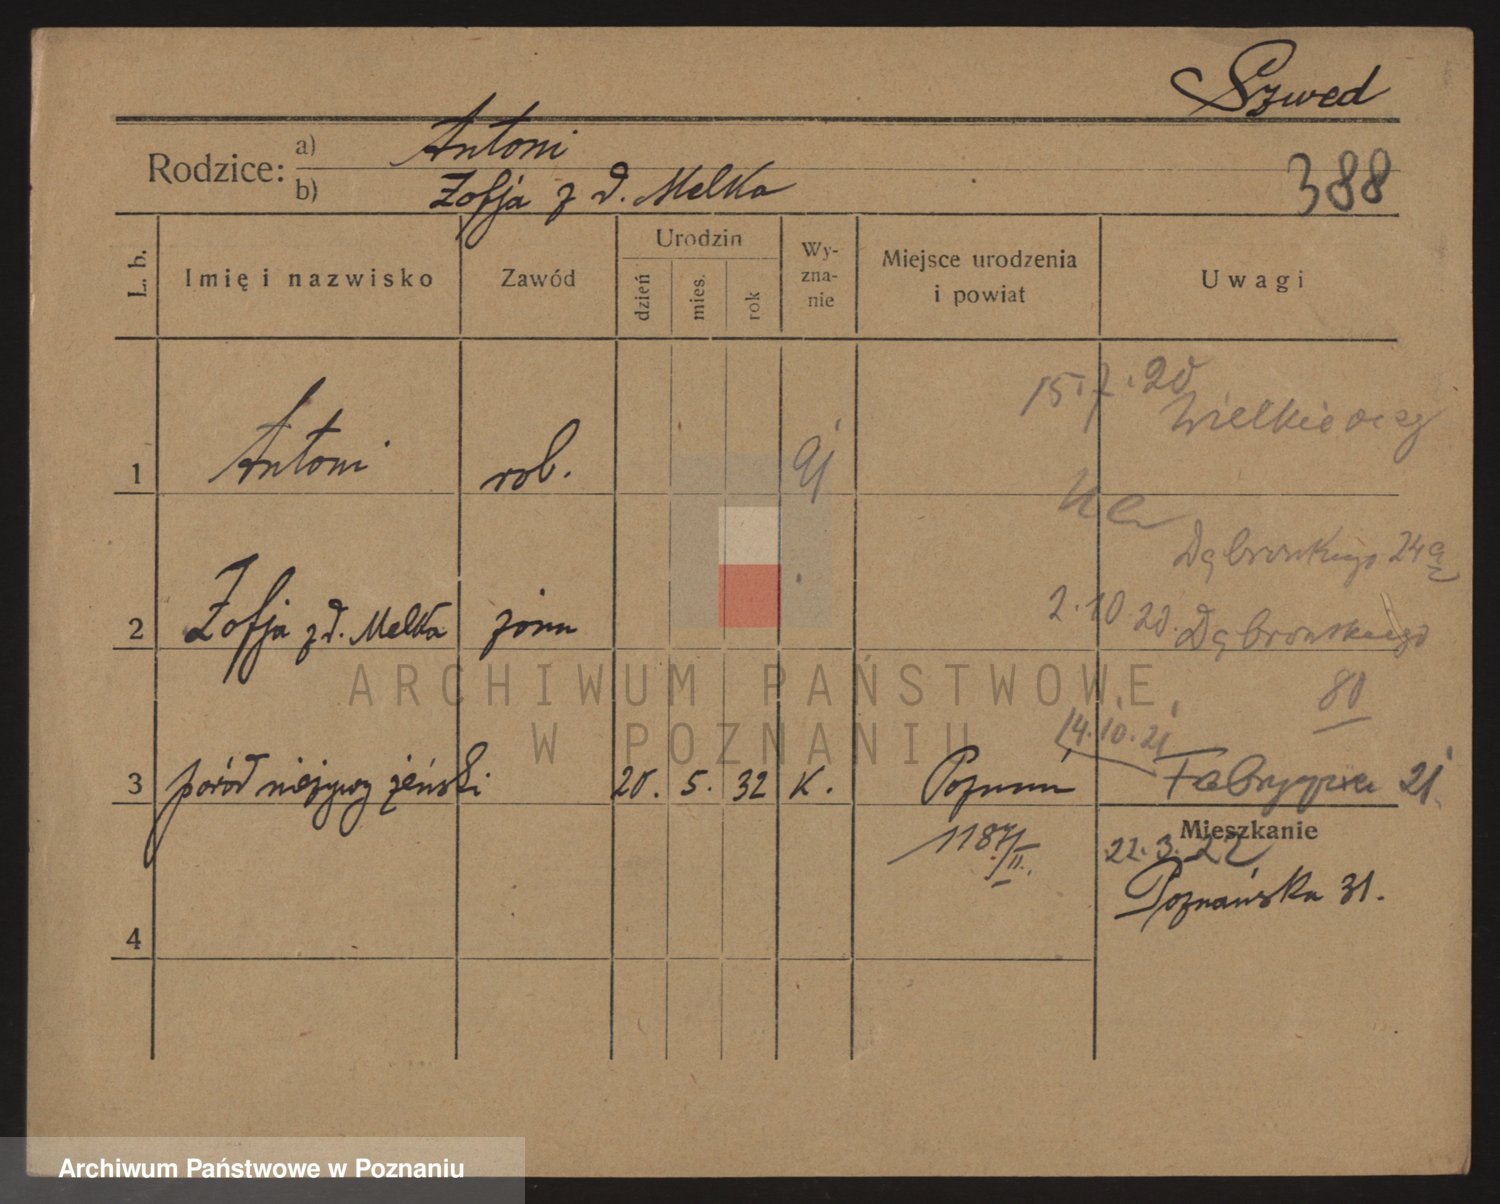 Szwed
Rodzice: a) Antoni
b) Zofja z d. Melka
388
L. b. Imię i nazwisko Zawód Urodzin dzień mies. rok Wy-zna-nie Miejsce urodzenia i powiat Uwagi
15.7.20
1 Antoni rob.
Dąbrowskiego 24a
2 Zofja z d. Melka żona
2.10.20. Dąbrowskiego
80
14.10.21
3 poród nieżywy żeński 20. 5. 32 K. Poznań Fabryczna 21.
1187/II.
Mieszkanie
22.3.22
Poznańska 31.
4
ARCHIWUM PAŃSTWOWE
W POZNANIU
Archiwum Państwowe w Poznaniu